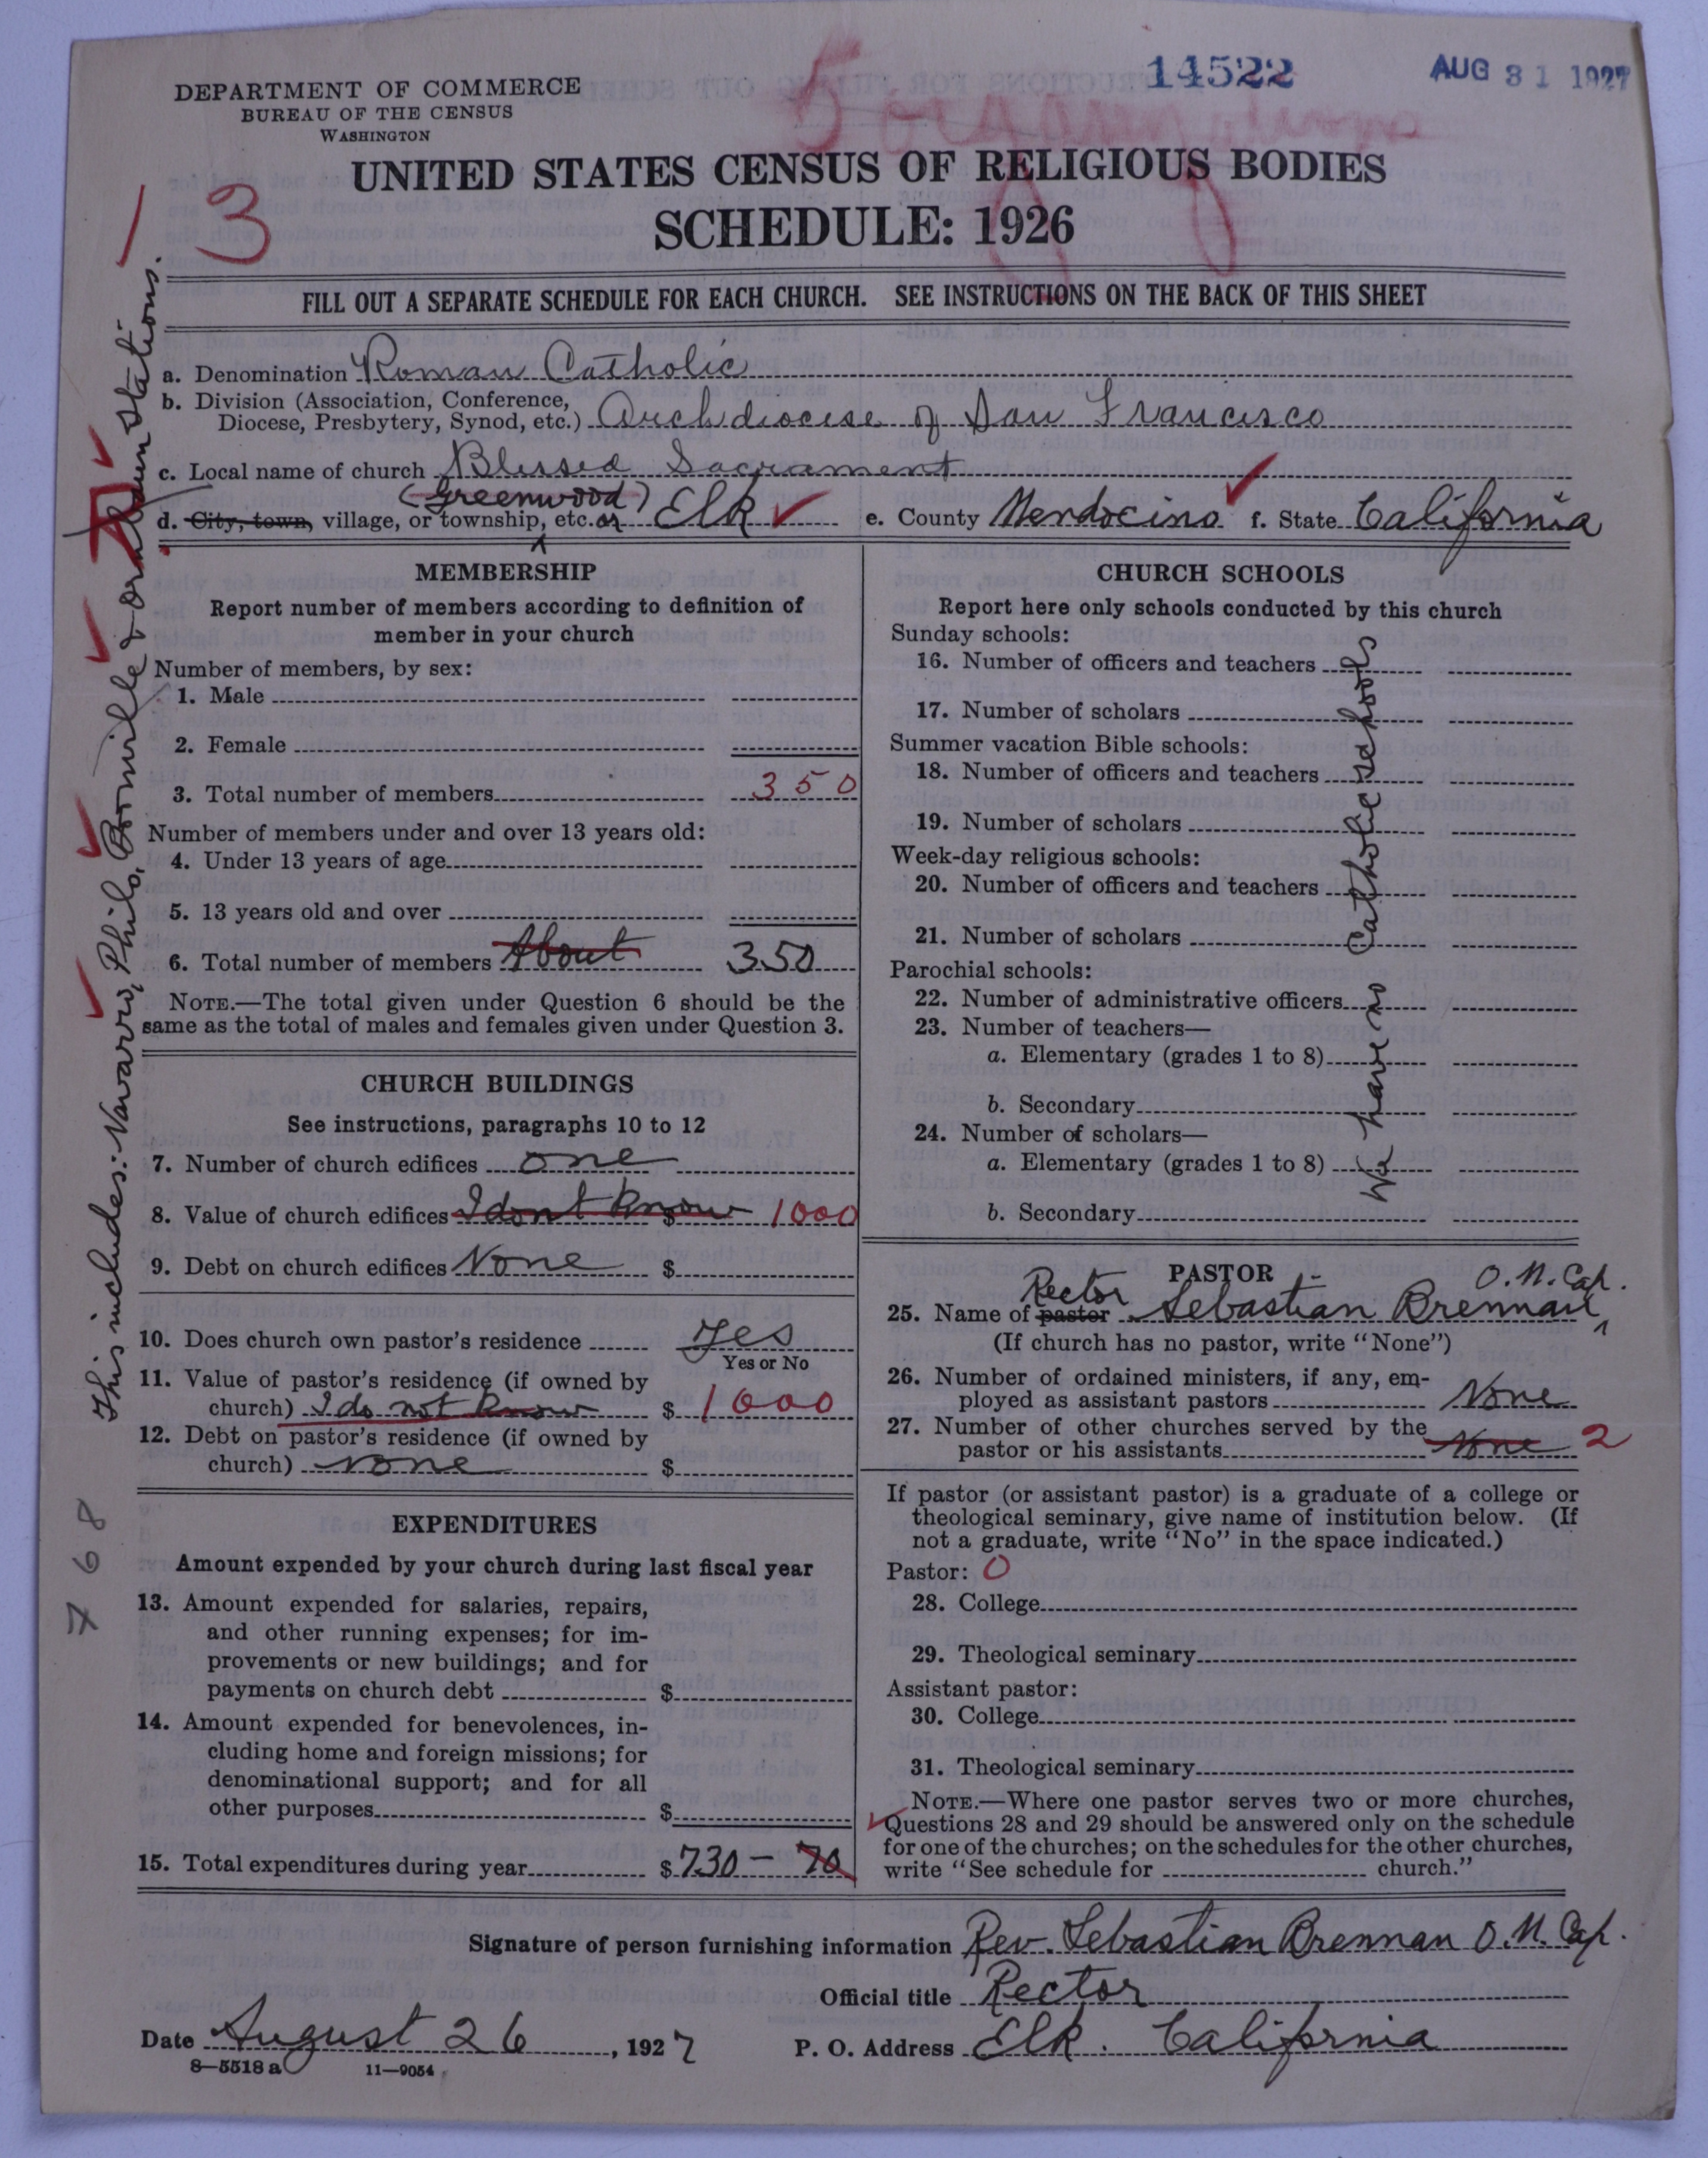 14522
AUG 31 1927
DEPARTMENT OF COMMERCE
BUREAU OF THE CENSUS
WASHINGTON
3
UNITED STATES CENSUS OF RELIGIOUS BODIES
SCHEDULE: 1926
FILL OUT A SEPARATE SCHEDULE FOR EACH CHURCH. SEE INSTRUCTIONS ON THE BACK OF THIS SHEET
a. Denomination Roman Catholic
b. Division (Association, Conference,
Diocese, Presbytery, Synod, etc.) Archdiocese of San Francisco
c. Local name of church Blessed Sacrament
(Greenwood)
d. City, town, village, or township, etc. or Elk e. County Mendocino f. State California
This includes: Navarro, Philo, Boonville & stations.
768
MEMBERSHIP
Report number of members according to definition of
member in your church
Number of members, by sex:
1. Male
2. Female
3. Total number of members 350
Number of members under and over 13 years old:
4. Under 13 years of age
5. 13 years old and over
6. Total number of members About 350
NOTE.—The total given under Question 6 should be the
same as the total of males and females given under Question 3.
CHURCH BUILDINGS
See instructions, paragraphs 10 to 12
7. Number of church edifices one
8. Value of church edifices I dont know $ 1000
9. Debt on church edifices None $
10. Does church own pastor's residence Yes
Yes or No
11. Value of pastor's residence (if owned by
church) I do not know $ 1000
12. Debt on pastor's residence (if owned by
church) none $
EXPENDITURES
Amount expended by your church during last fiscal year
13. Amount expended for salaries, repairs,
and other running expenses; for im-
provements or new buildings; and for
payments on church debt $
14. Amount expended for benevolences, in-
cluding home and foreign missions; for
denominational support; and for all
other purposes $
15. Total expenditures during year $ 730 – 70
CHURCH SCHOOLS
Report here only schools conducted by this church
Sunday schools:
16. Number of officers and teachers
17. Number of scholars
Summer vacation Bible schools:
18. Number of officers and teachers
19. Number of scholars
Week-day religious schools:
20. Number of officers and teachers
21. Number of scholars
Parochial schools:
22. Number of administrative officers
23. Number of teachers—
a. Elementary (grades 1 to 8)
b. Secondary
24. Number of scholars—
a. Elementary (grades 1 to 8)
b. Secondary
We have no Catholic schools
PASTOR
Rector O.M.Cap.
25. Name of pastor Sebastian Brennan
(If church has no pastor, write "None")
26. Number of ordained ministers, if any, em-
ployed as assistant pastors None
27. Number of other churches served by the
pastor or his assistants None 2
If pastor (or assistant pastor) is a graduate of a college or
theological seminary, give name of institution below. (If
not a graduate, write "No" in the space indicated.)
Pastor: 0
28. College
29. Theological seminary
Assistant pastor:
30. College
31. Theological seminary
NOTE.—Where one pastor serves two or more churches,
Questions 28 and 29 should be answered only on the schedule
for one of the churches; on the schedules for the other churches,
write "See schedule for church."
Signature of person furnishing information Rev. Sebastian Brennan O.M.Cap.
Official title Rector
Date August 26, 1927 P. O. Address Elk. California
8—5518 a 11—9054